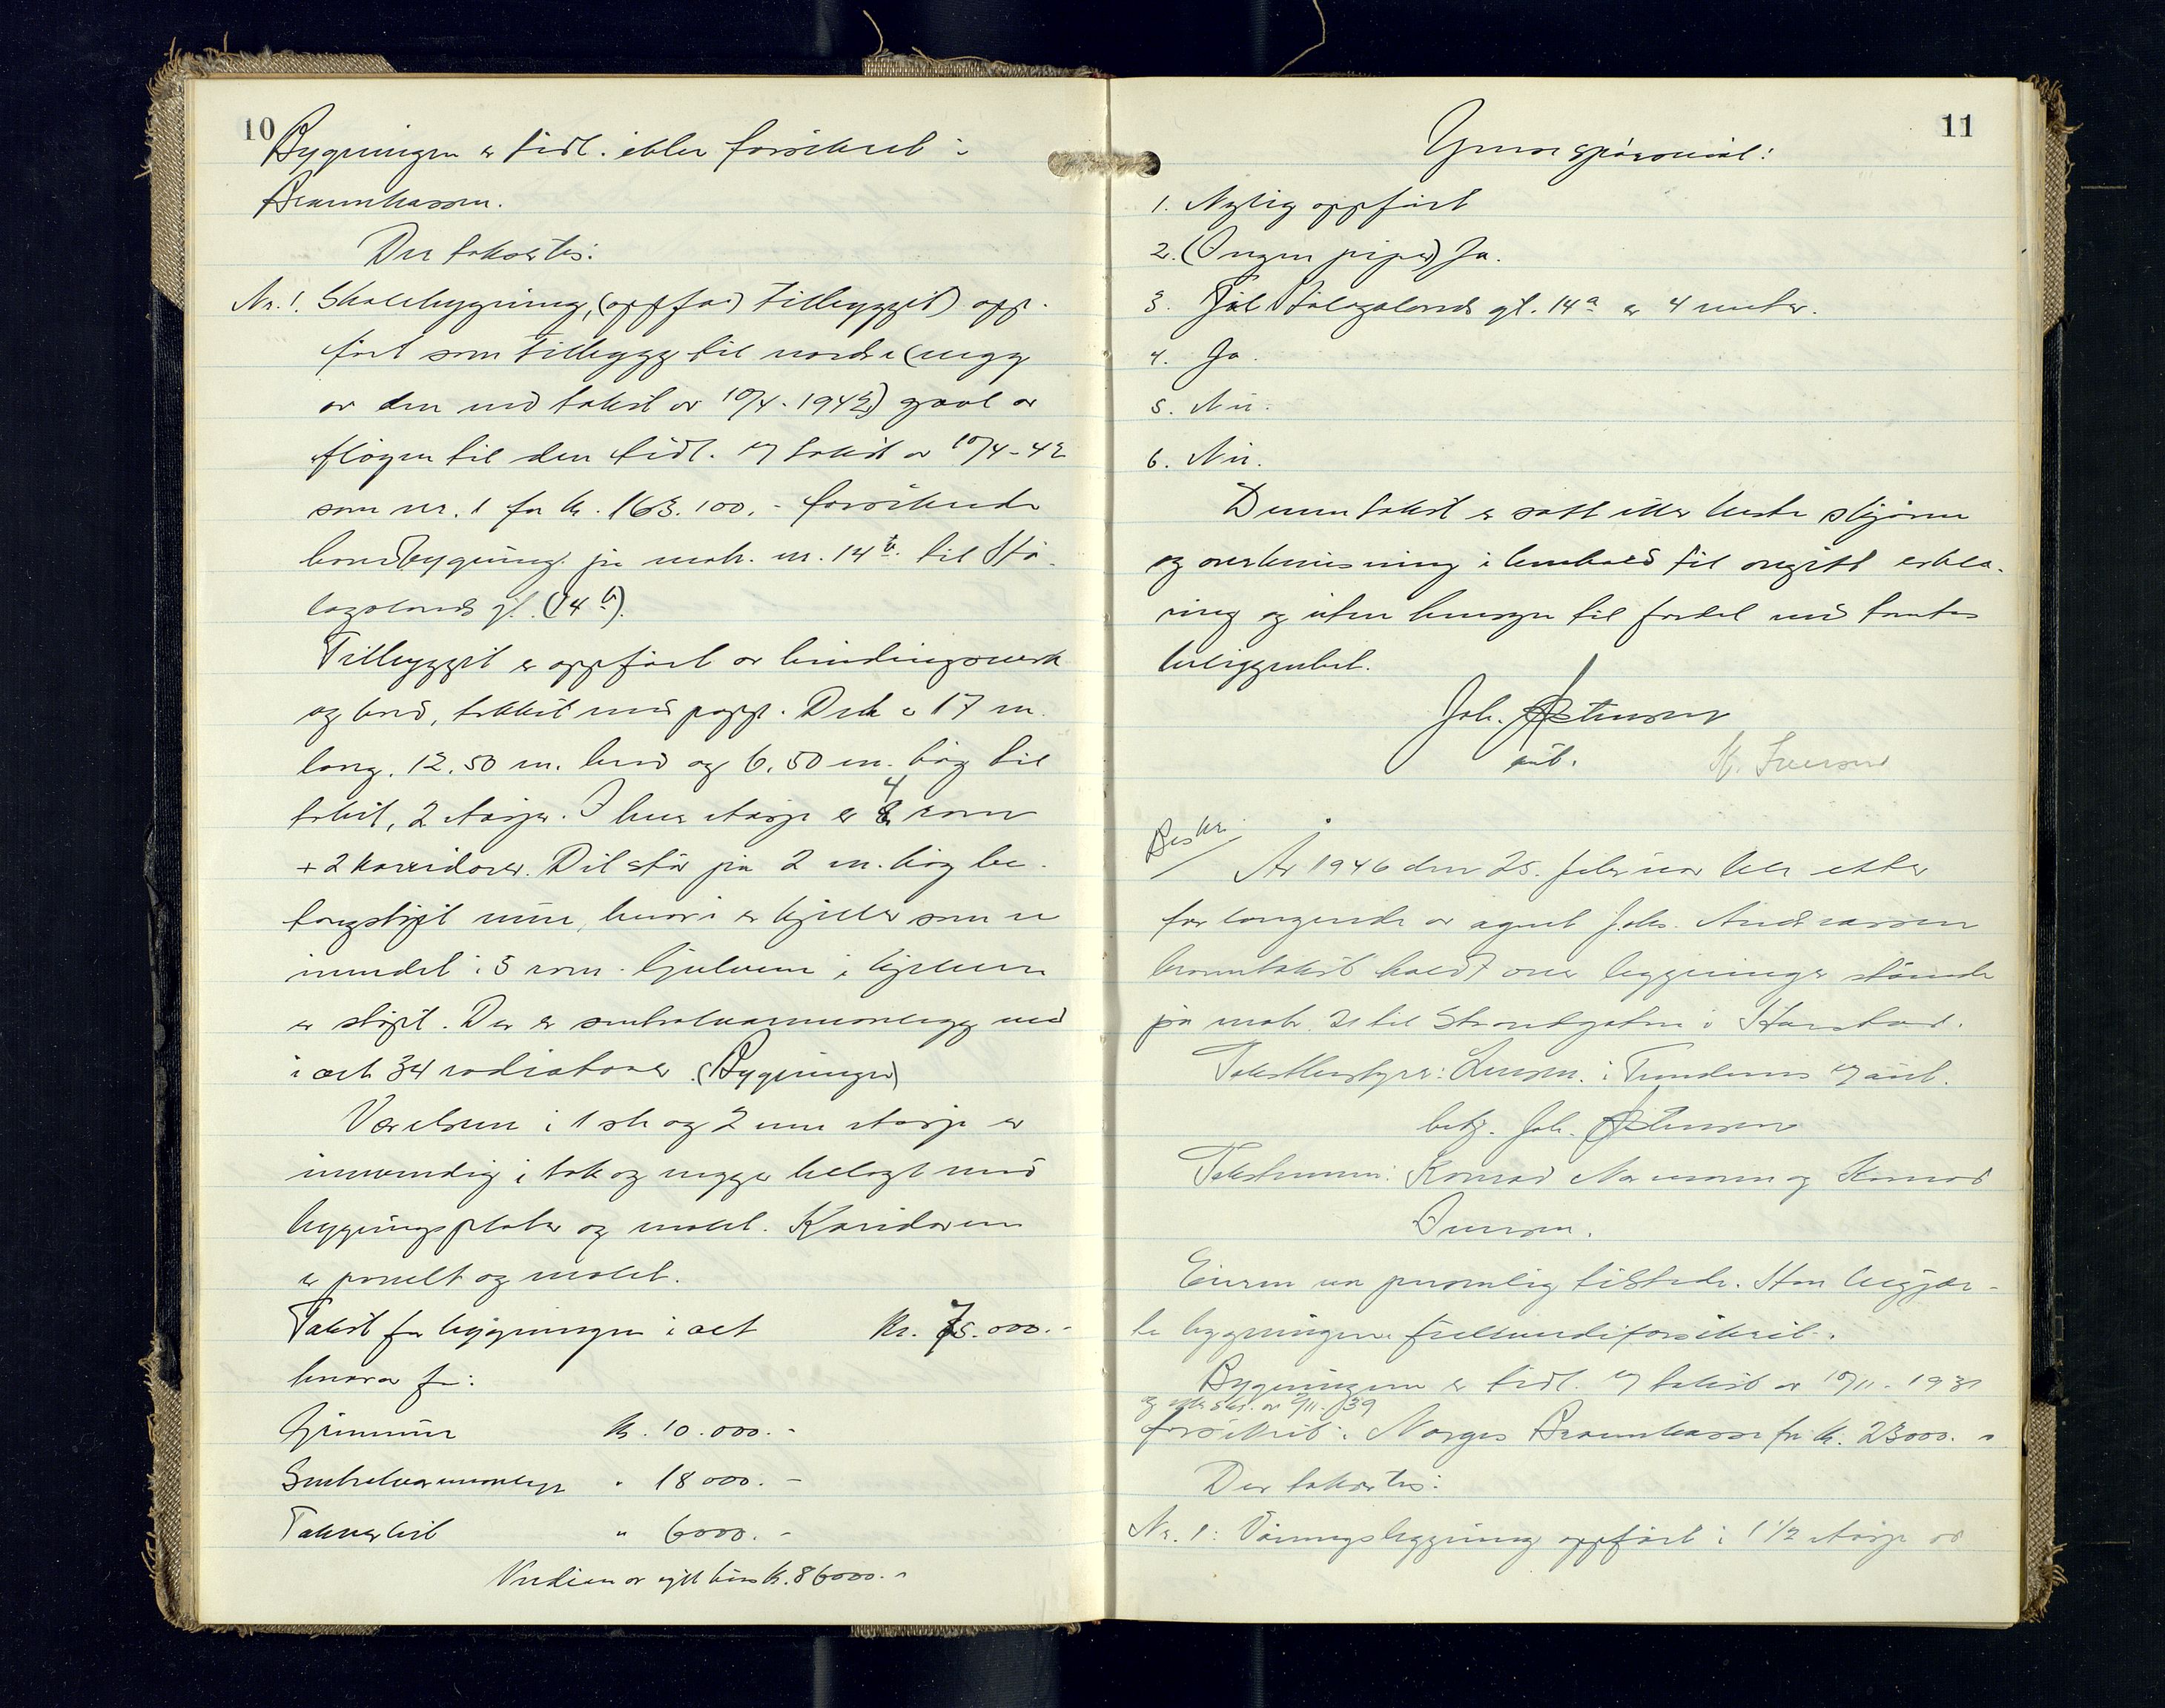 10
Bygningen er tidl. ikke forsikret i
Brannkassen.
Der takseres:
Nr. 1. Skolebygning, (oppfør) tilbygget) opp-
ført som tilbygg til nordre (vegg
av den med takst av 10/4-1942) gavl av
fløyen til den tidl. ved takst av 10/4-42
som nr. 1 for kr. 163.100,- forsikrede
hovedbygning på matr. nr. 14 b. til Hå-
logalands gt. (14 b).
Tilbygget er oppført av bindingsverk
og bord, tekket med papp. Det er 17 m.
lang, 12.50 m. bred og 6.50 m. høg til
taket, 2 etasjer. I hver etasje er 4 rom
+ 2 korridorer. Det står på 2 m. høg be-
tongstøpt mur, hvori er kjeller som er
inndelt i 5 rom. Gulvene i kjelleren
er støpt. Der er sentralvarmeanlegg med
i alt 34 radiatorer. (Bygningen)
Værelsene i 1ste og 2nen etasje er
innvendig i tak og vegger belagt med
bygningsplater og malt. Koridorene
er panelt og malt.
Takst for bygningen i alt kr. 75.000.-
hvorav for:
Grunnmur kr. 10.000.-
Sentralvarmeanlegg " 18000.-
Takverket " 6000.-
Verdien av nytt hus kr. 86000.-
11
Grunnspørsmål:
1. Nylig oppført
2. (Ingen piper) Ja.
3. Til Hålogalands gt. 14a er 4 meter.
4. Ja.
5. Nei.
6. Nei.
Denne takst er satt etter beste skjønn
og overbevisning i henhold til avgitt erklæ-
ring og uten hensyn til fordel ved tomtens
beliggenhet.
Joh. Østensen
aut. K. Iversen
Beskr.
År 1946 den 25. februar ble etter
forlangende av agent Johs. Andreassen
branntakst holdt over bygninger stående
på matr. 21 til Strandgaten i Harstad.
Takstbestyrer: Lensm. i Trondenes ved aut.
betj. Joh. Østensen
Takstmenn: Konrad Normann og Konrad
Iversen.
Eieren var personlig tilstede. Han begjær-
te bygningene fullverdiforsikret.
Bygningene er tidl. ved takst av 10/11-1931
og etterskr. av 9/11-1939
forsikret i Norges Brannkasse for kr. 23000.-
Der takseres:
Nr. 1: Våningsbygning oppført i 1 1/2 etasje av